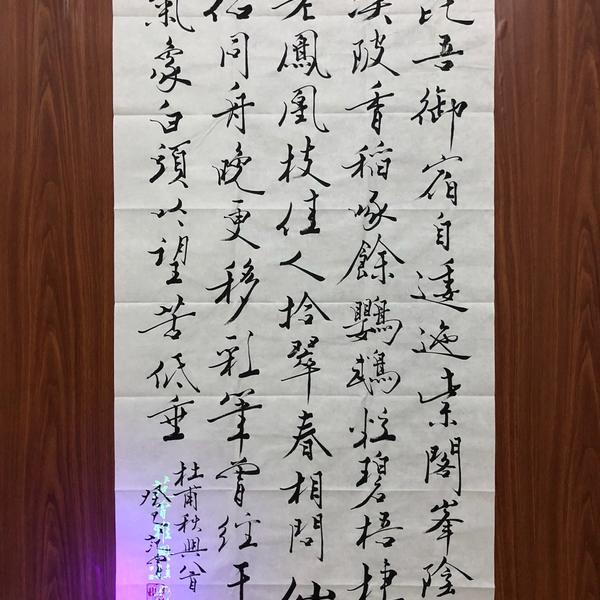 昆吾御宿自逶迤紫閣峯陰
渼陂香稻啄餘鸚鵡粒碧梧棲
老鳳凰枝佳人拾翠春相問仙
侶同舟晚更移彩筆曾經干
氣象白頭吟望苦低垂
杜甫秋興八首
癸巳